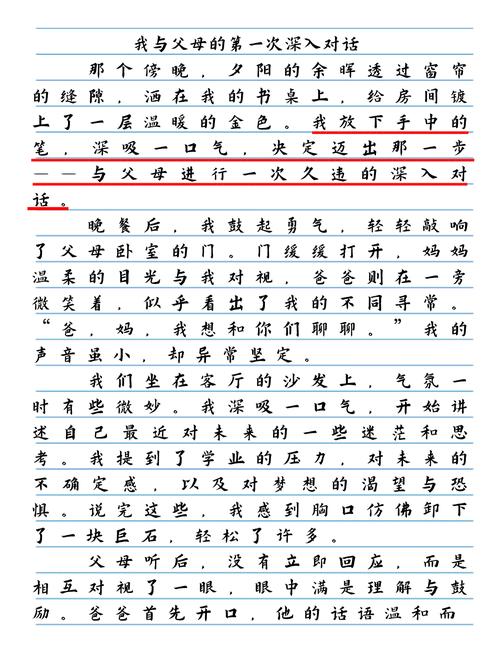 我与父母的第一次深入对话
那个傍晚，夕阳的余晖透过窗帘
的缝隙，洒在我的书桌上，给房间镀
上了一层温暖的金色。我放下手中的
笔，深吸一口气，决定迈出那一步
——与父母进行一次久违的深入对
话。
晚餐后，我鼓起勇气，轻轻敲响
了父母卧室的门。门缓缓打开，妈妈
温柔的目光与我对视，爸爸则在一旁
微笑着，似乎看出了我的不同寻常。
“爸，妈，我想和你们聊聊。”我的
声音虽小，却异常坚定。
我们坐在客厅的沙发上，气氛一
时有些微妙。我深吸一口气，开始讲
述自己最近对未来的一些迷茫和思
考。我提到了学业的压力，对未来的
不确定感，以及对梦想的渴望与恐
惧。说完这些，我感到胸口仿佛卸下
了一块巨石，轻松了许多。
父母听后，没有立即回应，而是
相互对视了一眼，眼中满是理解与鼓
励。爸爸首先开口，他的话语温和而